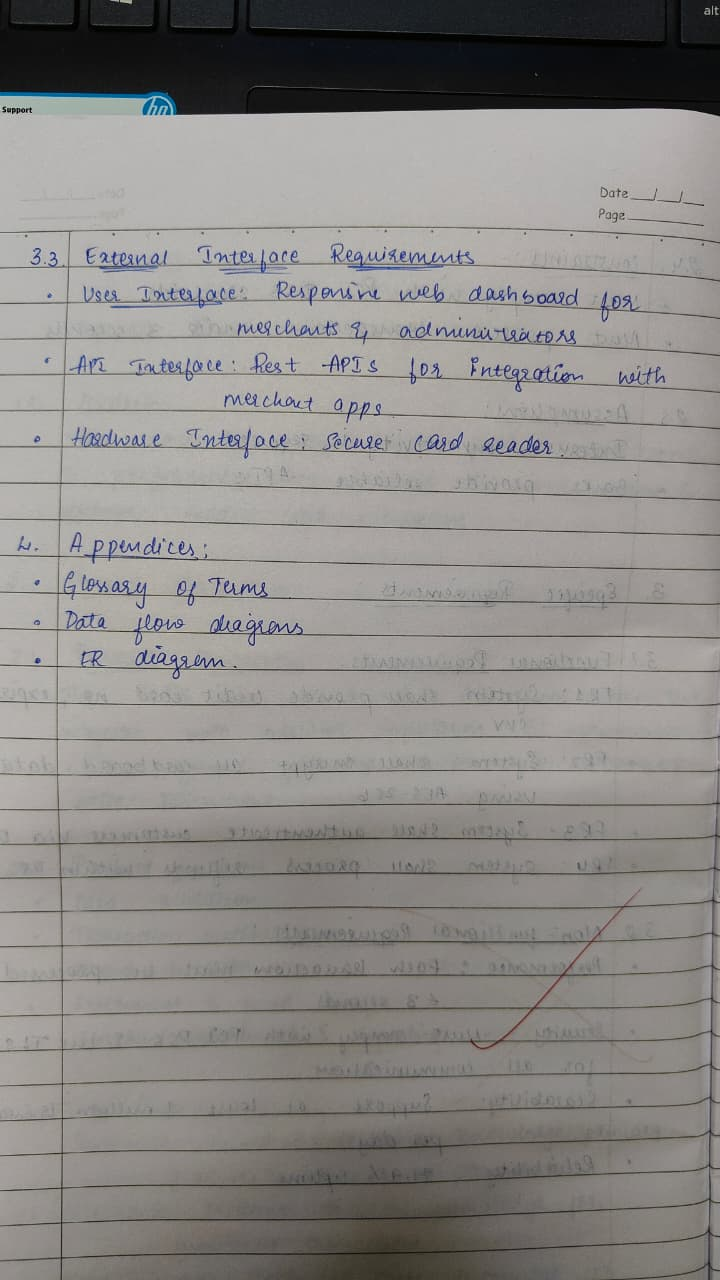 alt
Support
hp
Date
Page
3.3. External Interface Requirements
• User Interface: Responsive web dashboard for
merchants & administrators
• API Interface: Rest APIs for Integration with
merchant apps.
• Hardware Interface: Secure card reader.
4. Appendices:
• Glossary of Terms
• Data flow diagrams
• ER diagram.